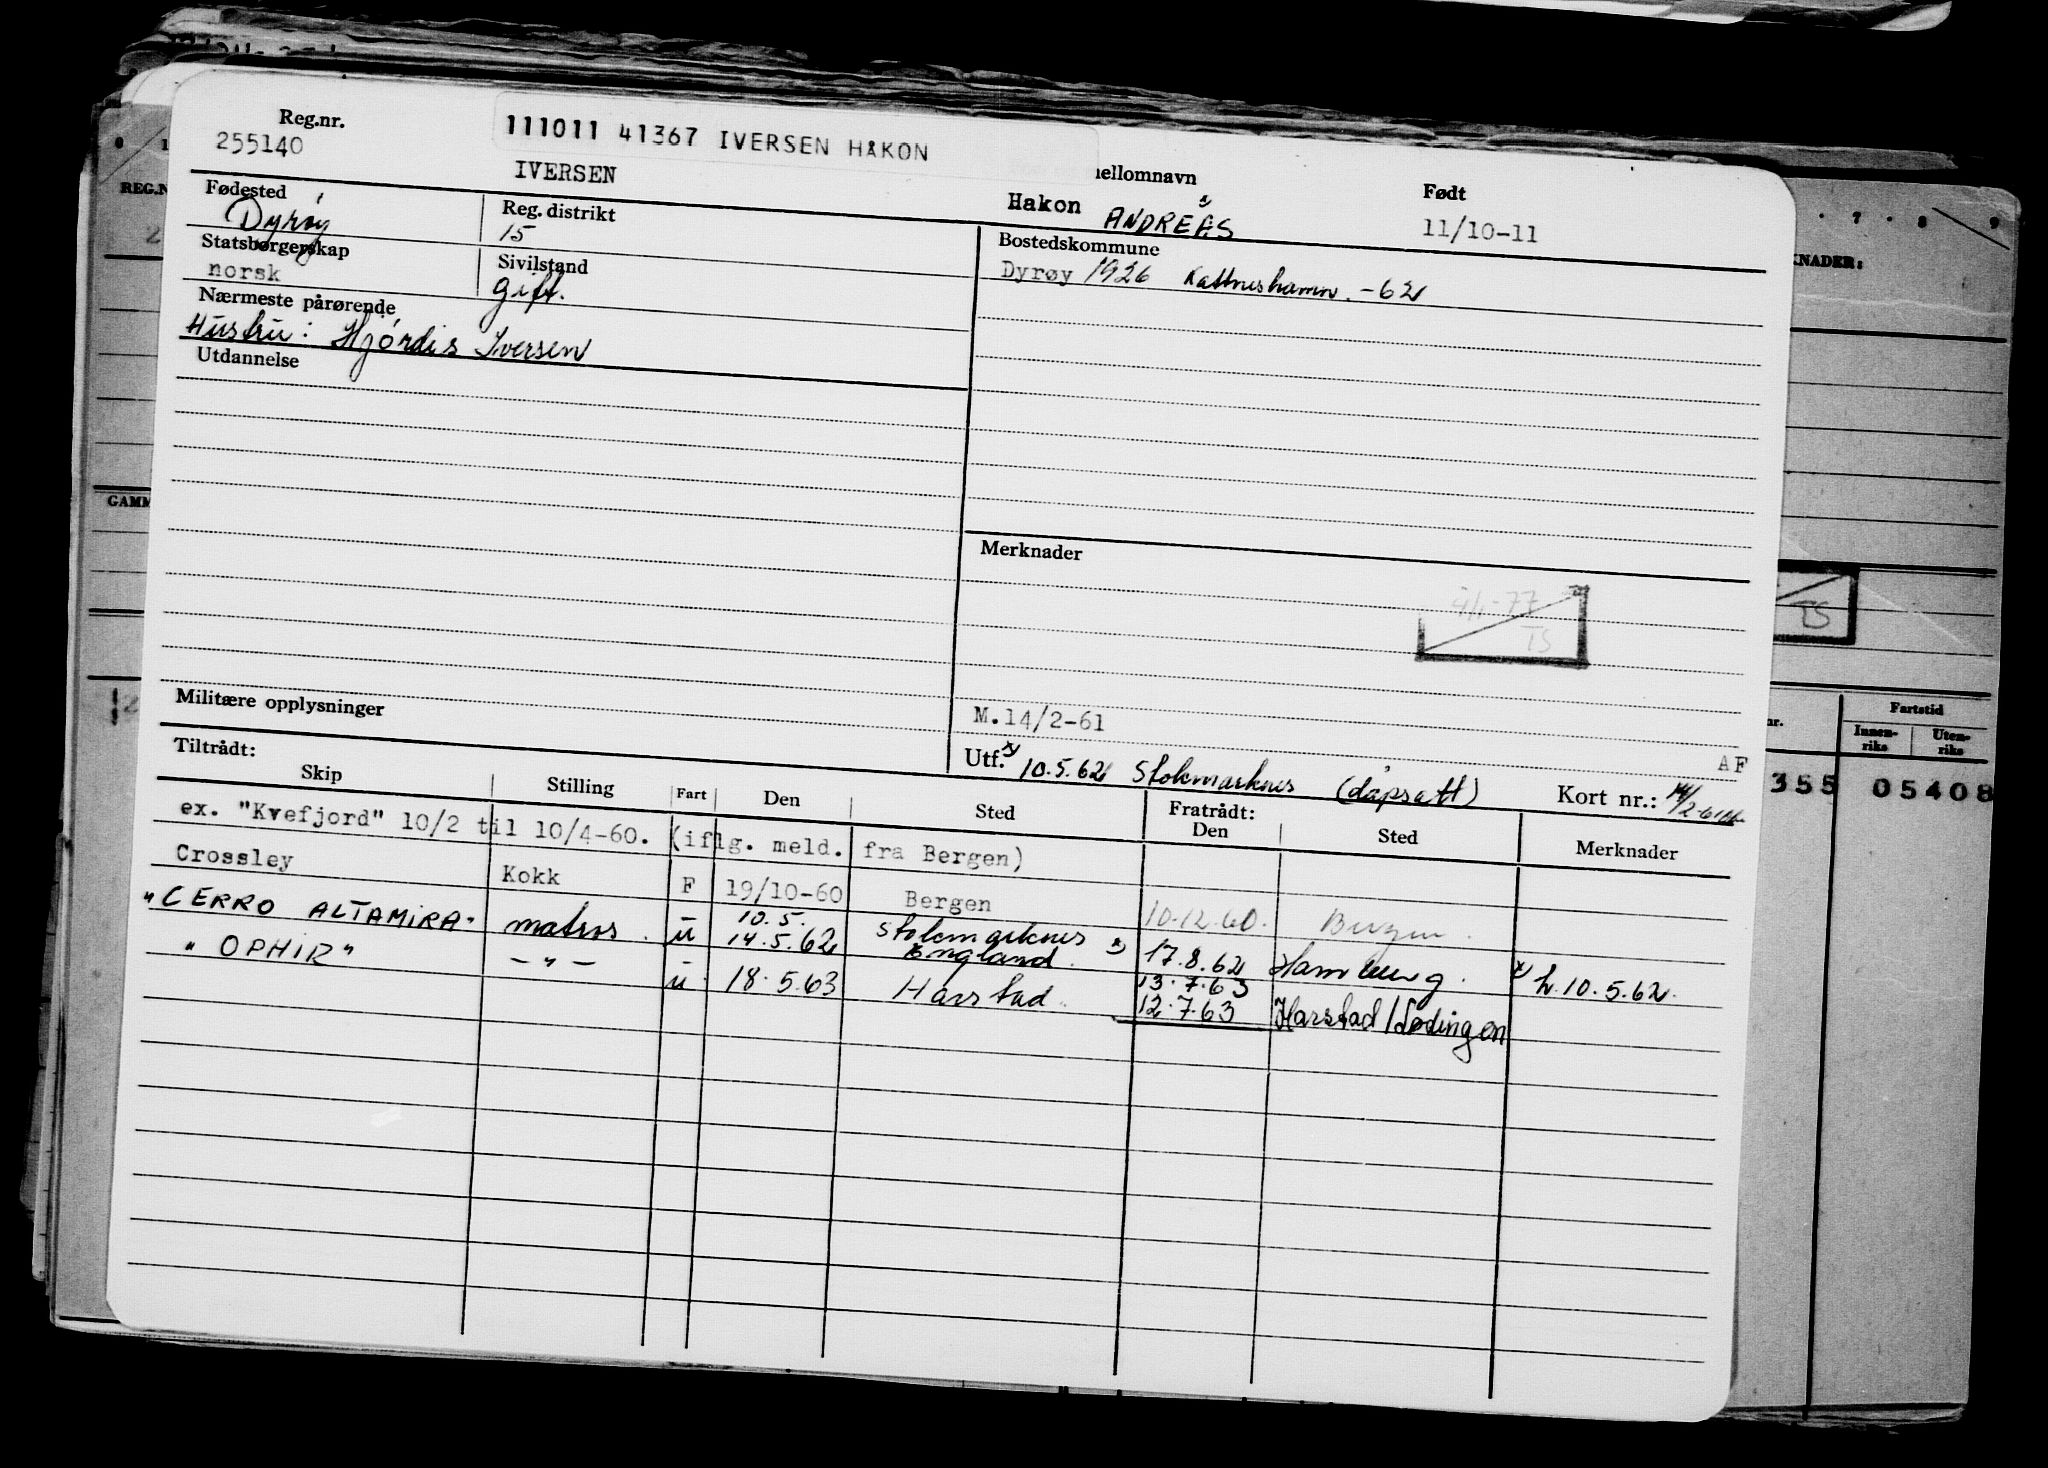 Reg.nr.
255140
111011 41367 IVERSEN HÅKON
IVERSEN
ellomnavn
Hakon ANDREAS
Født
11/10-11
Fødested
Dyrøy
Reg. distrikt
15
Bostedskommune
Dyrøy 1926 Kastneshamn. -62
Statsborgerskap
norsk
Sivilstand
gift.
Nærmeste pårørende
Hustru: Hjördis Iversen
Utdannelse
Merknader
4/1-77
TS
Militære opplysninger
M.14/2-61
Utf. x) 10.5.62 Stokmarknes (dåpsatt)
AF
Kort nr.: 14/2-61
Tiltrådt:
Skip Stilling Fart Den Sted Fratrådt: Den Sted Merknader
ex. "Kvefjord" 10/2 til 10/4-60. (iflg. meld. fra Bergen)
Crossley Kokk F 19/10-60 Bergen 10.12.60. Bergen.
"CERRO ALTAMIRA" matros. u 10.5. 14.5.62 Stokmarknes England. x) 17.8.62 Hamburg. x) h. 10.5.62.
"OPHIR" -"- u 18.5.63 Harstad. 13.7.63
12.7.63 Harstad/Lødingen
REG.N
GAMM
KNADER:
7 8 9
TS
nr.
Fartstid
Innen-riks
Uten-riks
355 05408